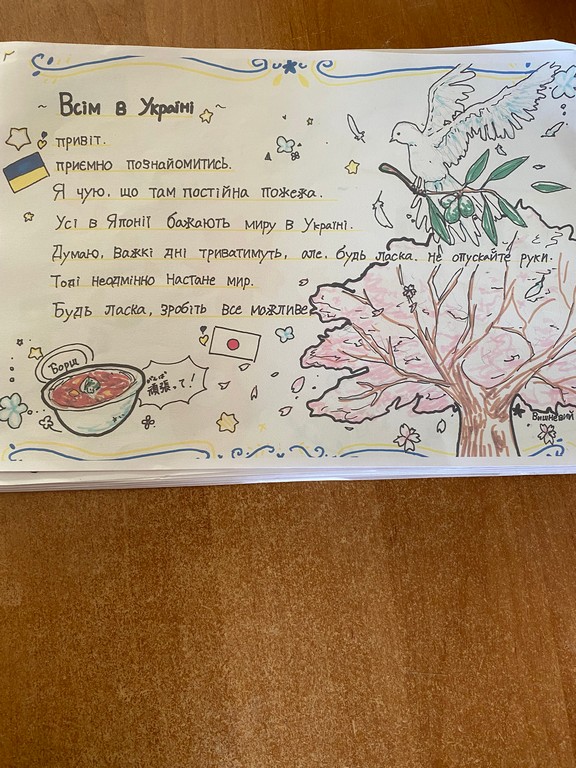 ~ Всім в Україні ~
привіт.
приємно познайомитись.
Я чую, що там постійна пожежа.
Усі в Японії бажають миру в Україні.
Думаю, важкі дні триватимуть, але, будь ласка, не опускайте руки.
Тоді неодмінно настане мир.
Будь ласка, зробіть все можливе
Борщ
がんば
頑張って!
Вишневий